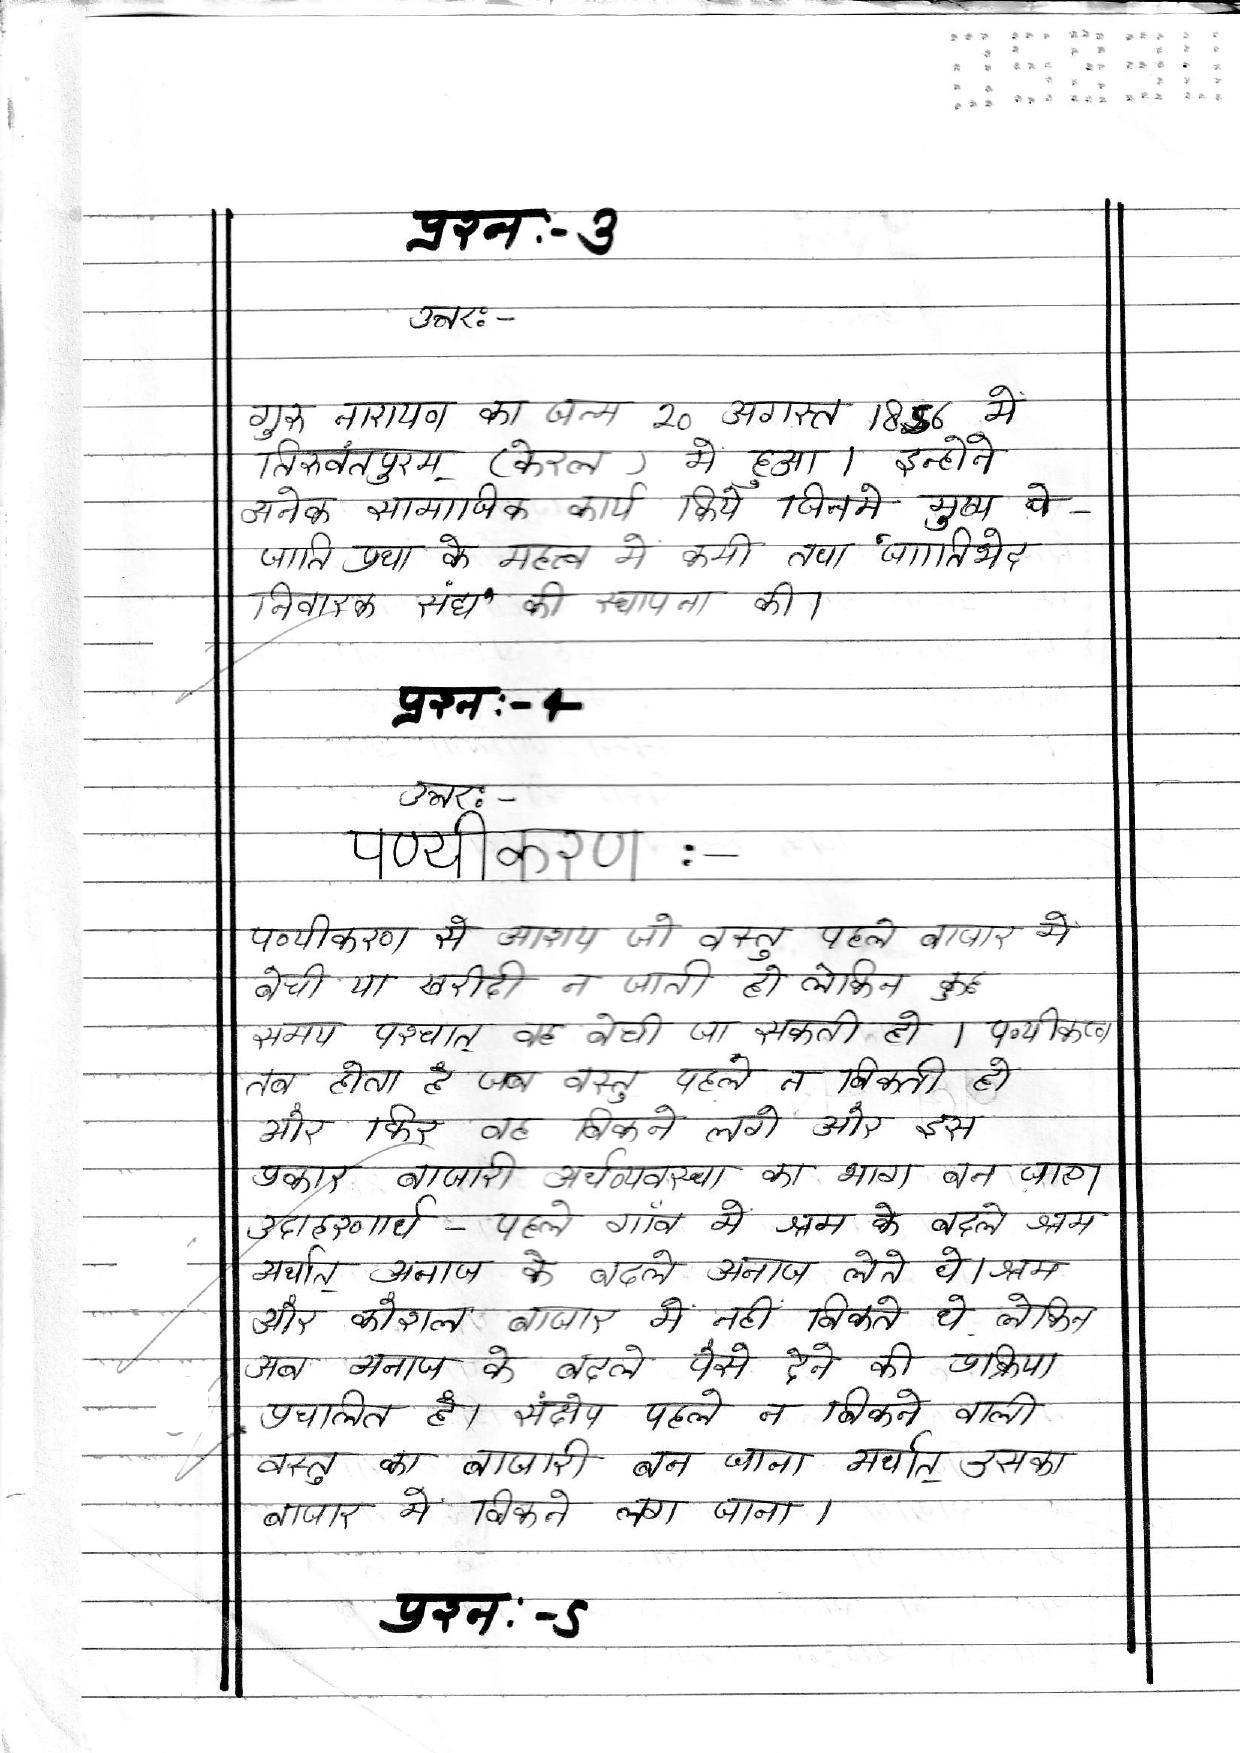 प्रश्नः-3
उत्तरः-
गुरु नारायण का जन्म 20 अगस्त 1856 में
तिरुवंतपुरम् (केरल) में हुआ। इन्होने
अनेक सामाजिक कार्य किये जिनमे मुख्य थे-
जाति प्रथा के महत्व में कमी तथा 'जातिभेद
निवारक संघ' की स्थापना की।
प्रश्नः-4
उत्तरः-
पण्यीकरण :-
पण्यीकरण से आशय जो वस्तु पहले बाजार में
बेची या खरीदी न जाती हो लेकिन कुछ
समय पश्चात् वह बेची जा सकती हो । पण्यीकरण
तब होता है जब वस्तु पहले न बिकती हो
और फिर वह बिकने लगे और इस
प्रकार बाजारी अर्थव्यवस्था का भाग बन जाए।
उदाहरणार्थ - पहले गाँव में श्रम के बदले श्रम
अर्थात् अनाज के बदले अनाज लेते थे। श्रम
और कौशल बाजार में नहीं बिकते थे लेकिन
अब अनाज के बदले पैसे देने की प्रक्रिया
प्रचलित है। संक्षेप पहले न बिकने वाली
वस्तु का बाजारी बन जाना अर्थात् उसका
बाजार में बिकने लग जाना ।
प्रश्नः-5